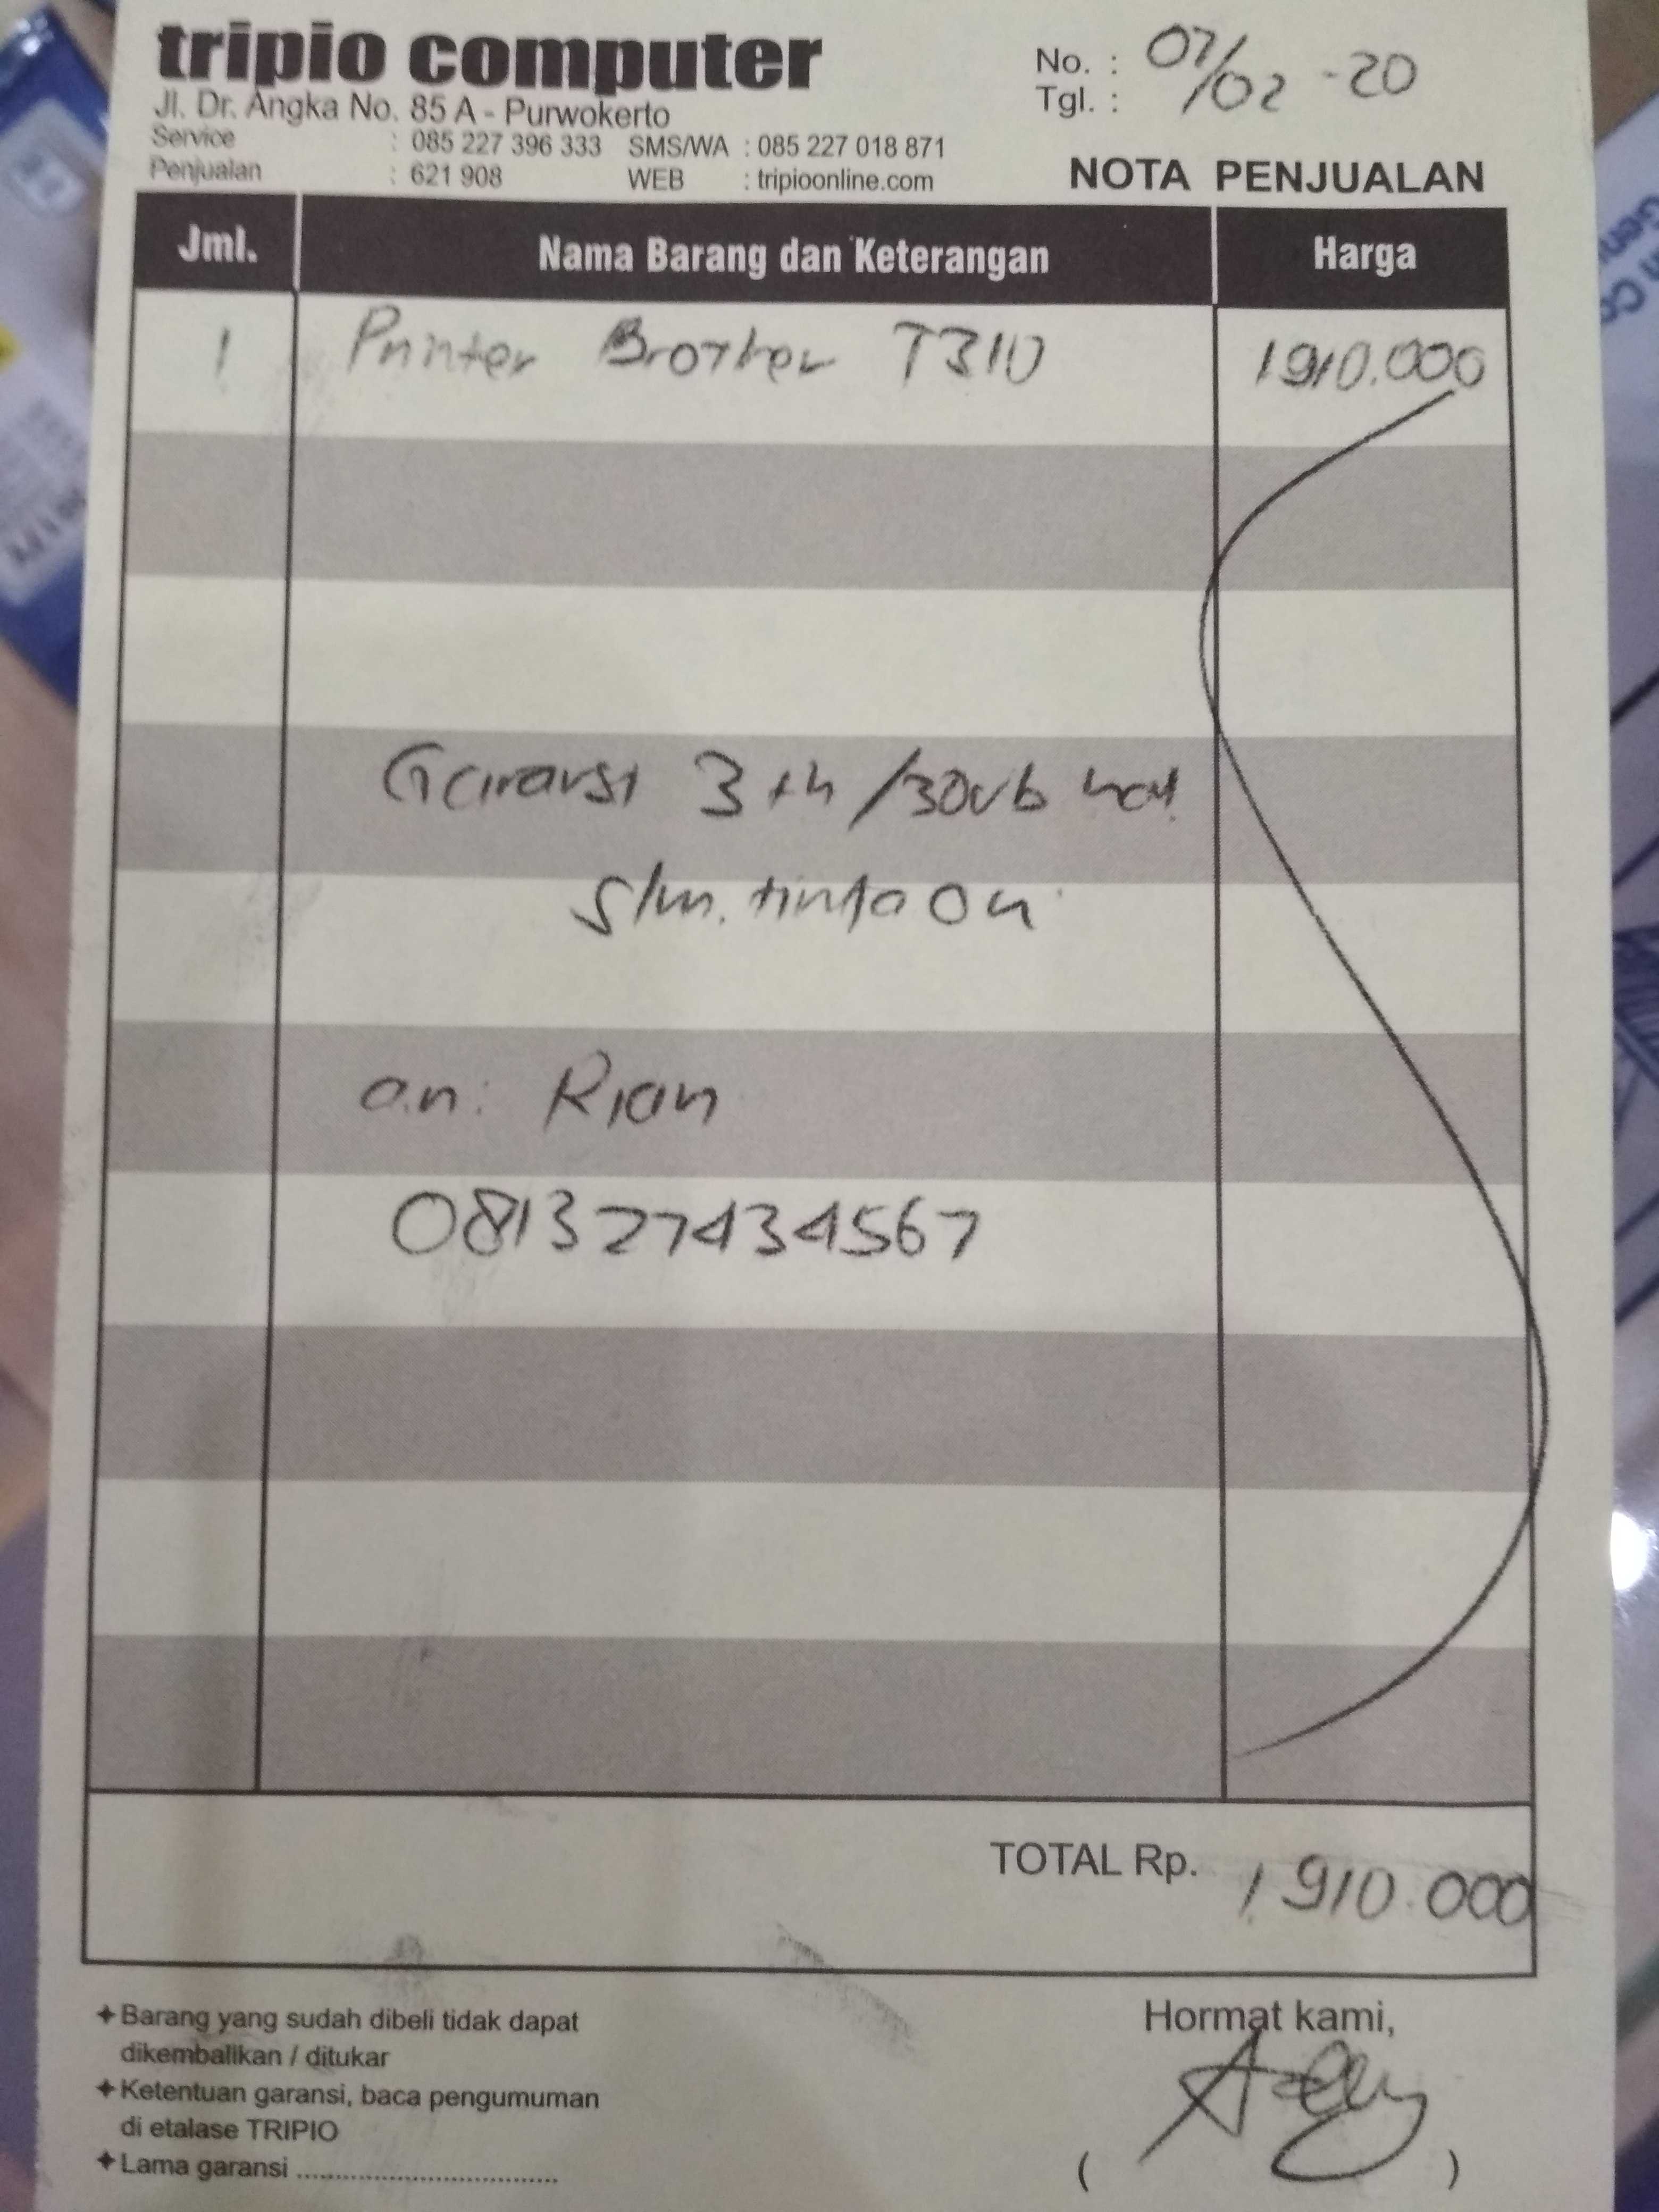 tripio computer
Jl. Dr. Angka No. 85 A - Purwokerto
Service : 085 227 396 333 SMS/WA : 085 227 018 871
Penjualan : 621 908 WEB : tripioonline.com
No. :
Tgl. : 07/02 -20
NOTA PENJUALAN
Jml. Nama Barang dan Keterangan Harga
1 Printer Brother T310 1910.000
Garansi 3 th /30rb hal
Slm. tinta Ori
a.n: Rian
081327434567
TOTAL Rp. 1.910.000
✦ Barang yang sudah dibeli tidak dapat
dikembalikan / ditukar
✦ Ketentuan garansi, baca pengumuman
di etalase TRIPIO
✦ Lama garansi ....................................
Hormat kami,
( )